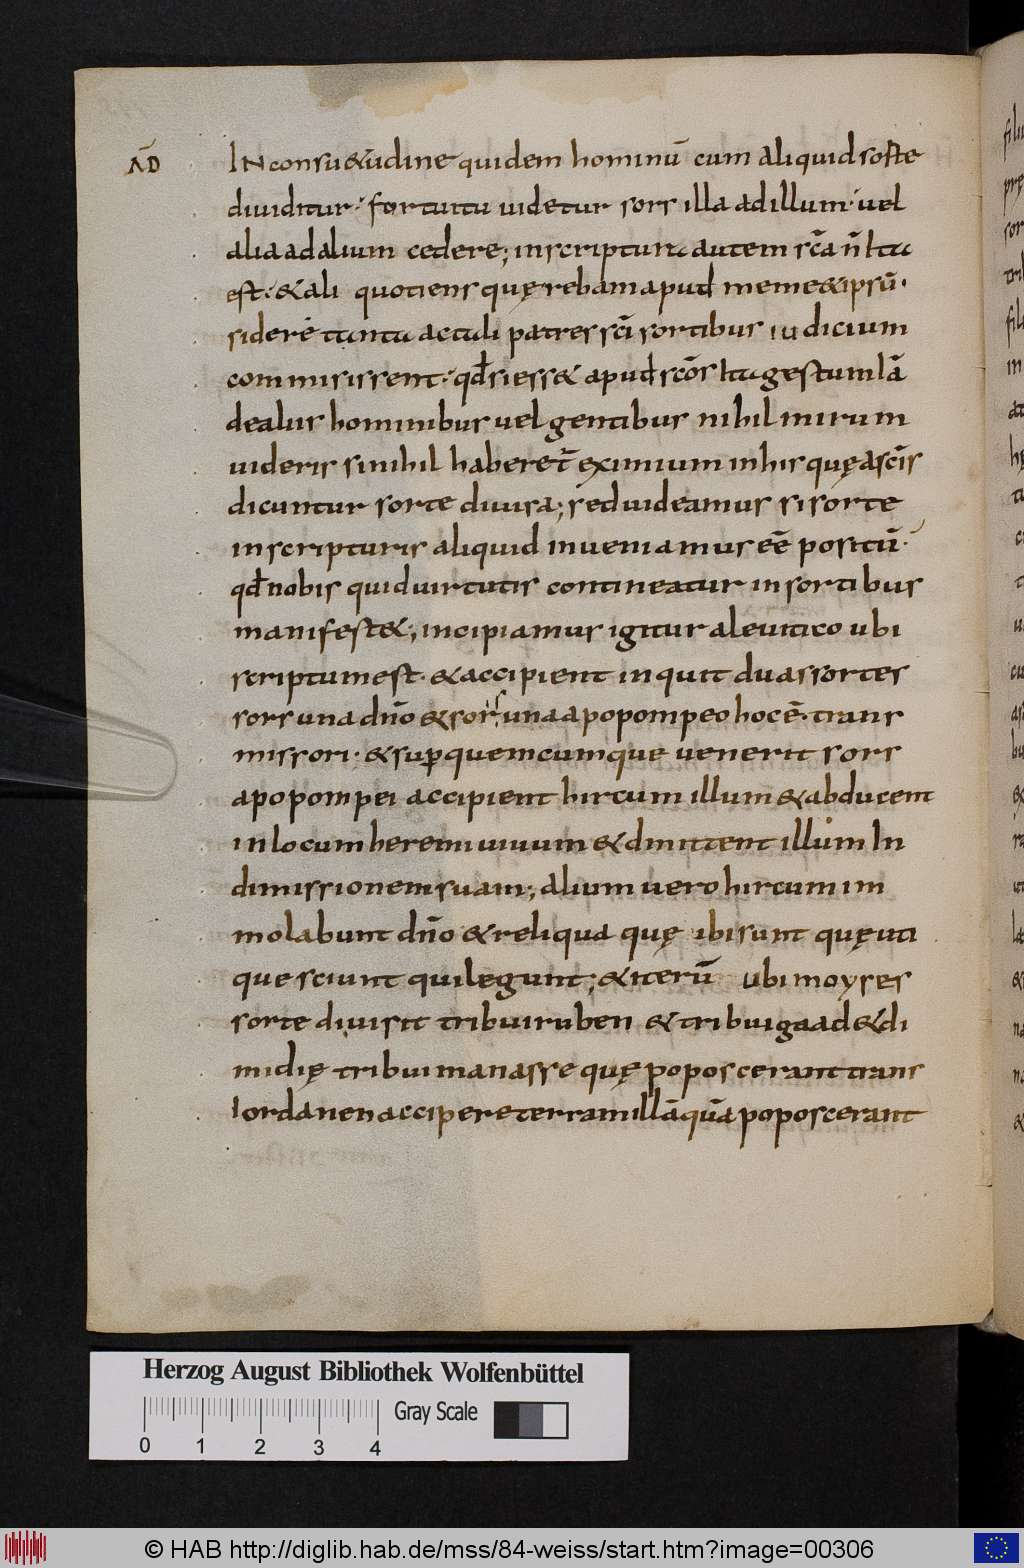 AD̅
IN consu&udine quidem hominū cum aliquid sorte
diuiditur· fortuitu uidetur sors illa ad illum· uel
alia ad alium cedere; inscriptura autem sc̄a n̄ ita
est·
&
ali quotiens quęrebam apud meme&ipsū·
sidere tanta actuli patres sc̄i sortibus iudicium
commisissent· qđ si ess& apud sc̄os ita gestum lā
de aliis hominibus uel gentibus nihil mirum
uideris si nihil haberet̄ eximium in his quę a sc̄is
dicuntur sorte diuisa; sed uideamus si sorte
in scripturis aliquid inueniamus eē positū·
qđ nobis quid uirtutis contineatur in sortibus
manifest&; incipiamus igitur a leuitico ubi
scriptum est· & accipient inquit duas sortes
sors una dn̄o & sors una apopompeo hoc ē· trans
missori· & sup quemcumque uenerit sors
apopompei accipient hircum illum & abducent
in locum heremi uiuum & dimittent illum In
dimissionem suam; alium uero hircum im
molabunt dn̄o & reliqua quę ibi sunt quę uti
que sciunt qui legunt; & iterū ubi moyses
sorte diuisit tribui ruben & tribui gaad & di
midię tribui manasse quę poposcerant trans
Iordanen accipere terram illā quā poposcerant
Herzog August Bibliothek Wolfenbüttel
Gray Scale
0 1 2 3 4
© HAB http://diglib.hab.de/mss/84-weiss/start.htm?image=00306